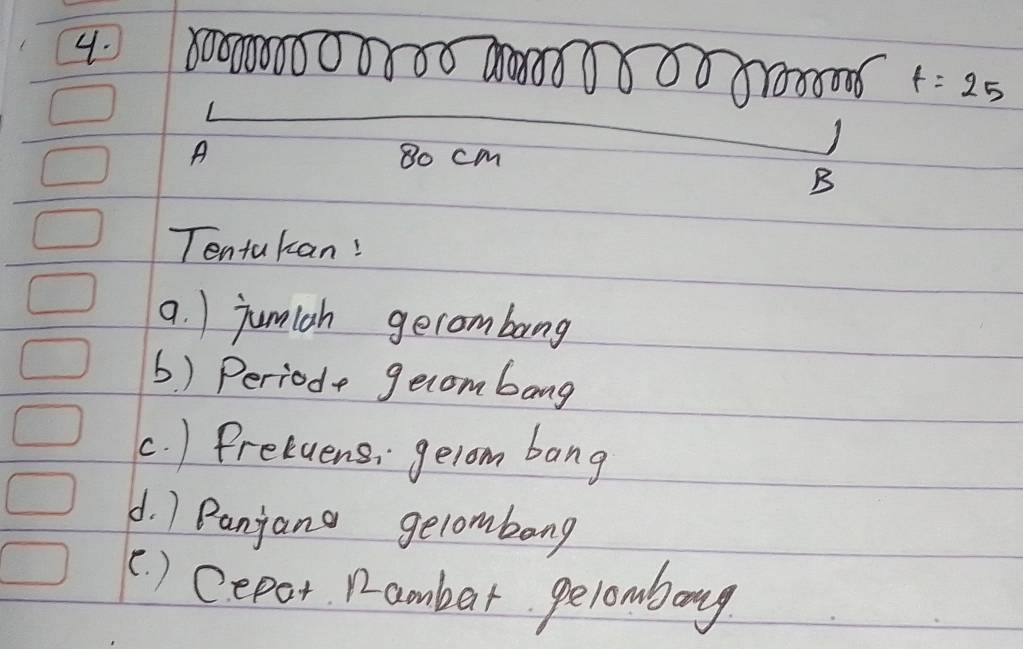 4. t = 25
A 80 cm B
Tentukan :
a.) jumlah gelombang
b.) Periode gelombang
c.) frekuensi gelombang
d.) Panjang gelombang
e.) Cepat Rambat gelombang